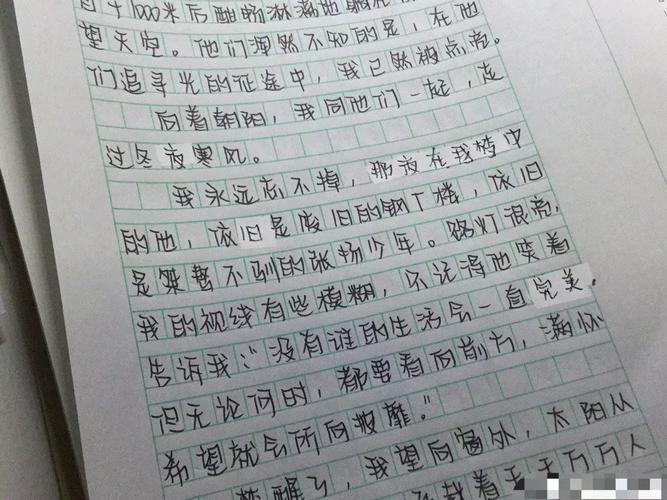 1000米后酣畅淋漓地躺在
望天空。他们浑然不知的是，在他
们追寻光的征途中，我已然被点亮。
向着朝阳，我同他们一起，走
过冬夜寒风。
我永远忘不掉，那夜在我梦中
的他，依旧是废旧的钢厂楼，依旧
是桀骜不驯的张扬少年。路灯很亮，
我的视线有些模糊，只记得他笑着
告诉我："没有谁的生活会一直完美，
但无论何时，都要看向前方，满怀
希望就会所向披靡。"
梦醒了，我望向窗外，太阳从
载着千千万万人